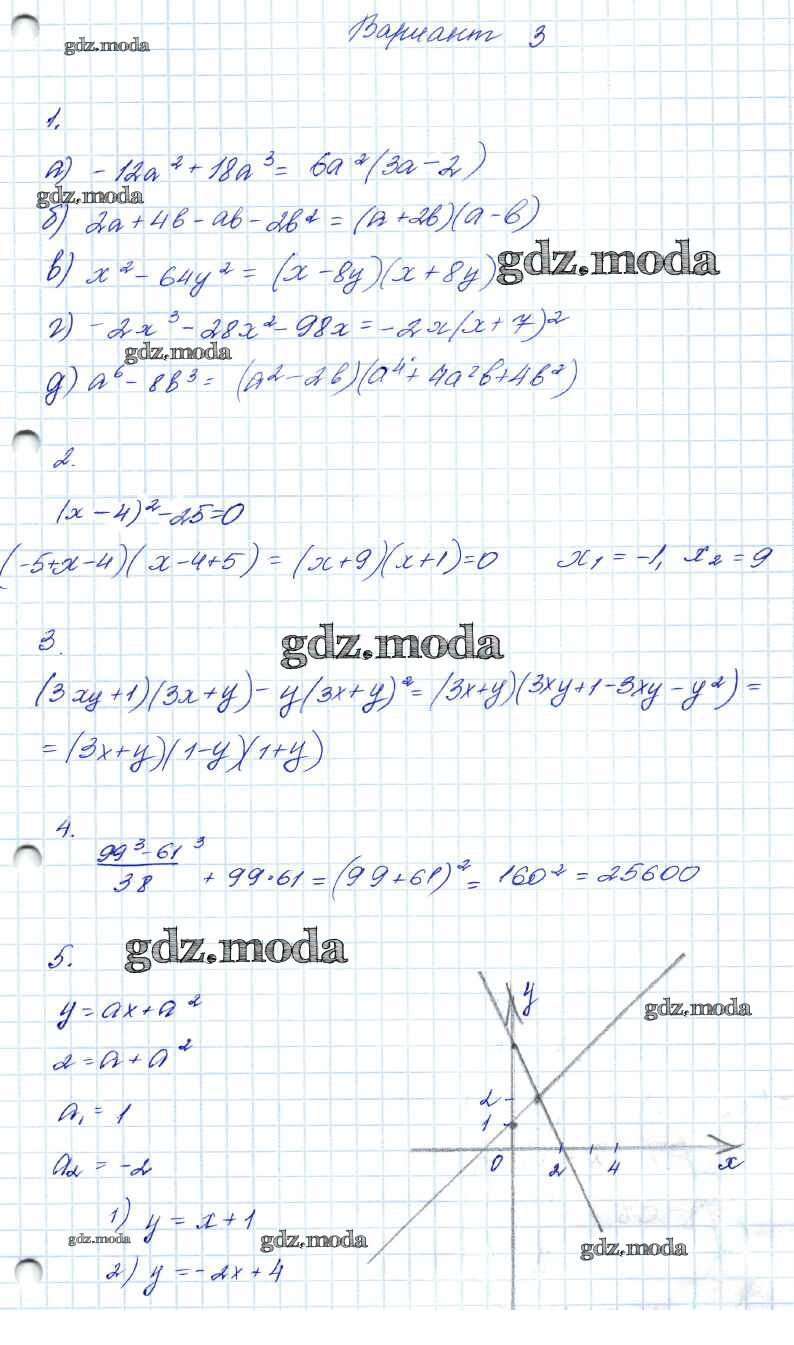 Вариант 3
gdz.moda
1.
а) -12a² + 18a³ = 6a²(3a - 2)
gdz.moda
б) 2a + 4b - ab - 2b² = (a + 2b)(a - b)
в) x² - 64y² = (x - 8y)(x + 8y)
gdz.moda
г) -2x³ - 28x² - 98x = -2x(x + 7)²
gdz.moda
д) a⁶ - 8b³ = (a² - 2b)(a⁴ + 4a²b + 4b²)
2.
(x - 4)² - 25 = 0
(-5+x-4)(x-4+5) = (x+9)(x+1)=0 x₁ = -1, x₂ = 9
3.
gdz.moda
(3xy+1)(3x+y) - y(3x+y)² = (3x+y)(3xy+1-3xy-y²) =
= (3x+y)(1-y)(1+y)
4.
99³-61³
38 + 99·61 = (99+61)² = 160² = 25600
5.
gdz.moda
y = ax + a²
2 = a + a²
a₁ = 1
a₂ = -2
1) y = x + 1
gdz.moda
2) y = -2x + 4
gdz.moda
y
gdz.moda
2
1
0 2 4 x
gdz.moda